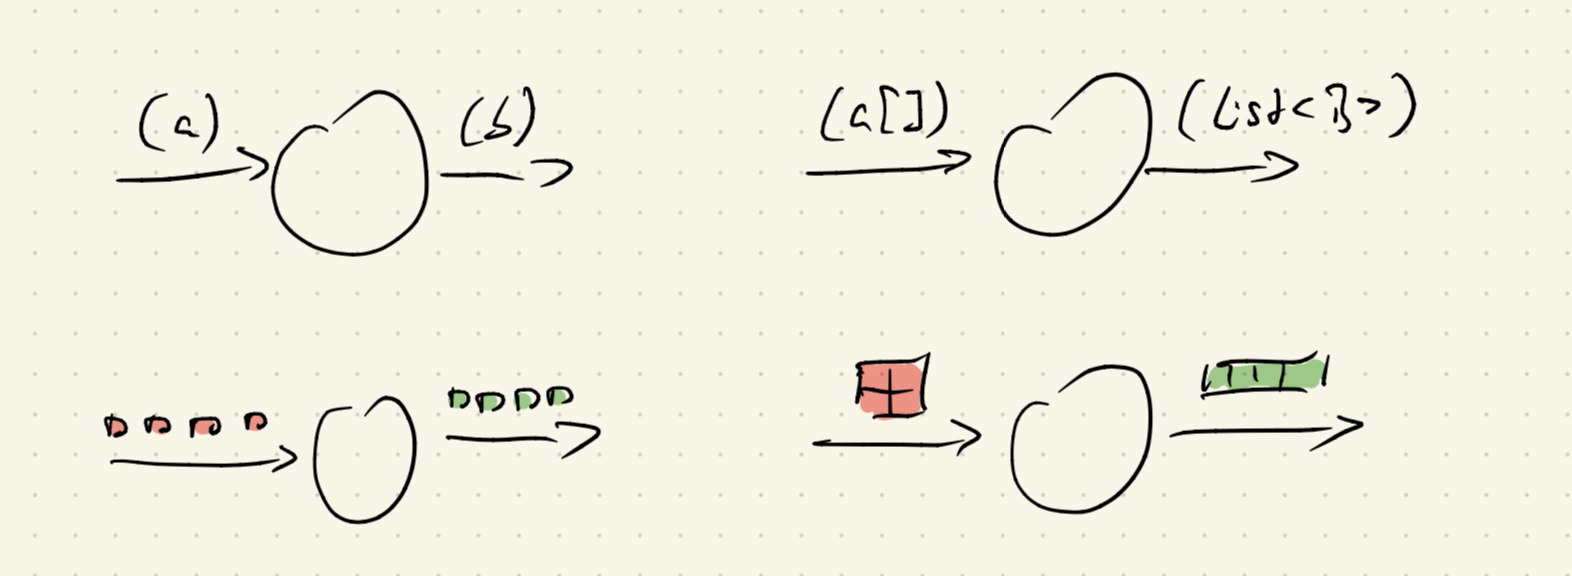 (a) (b) (a[]) (List<B>)